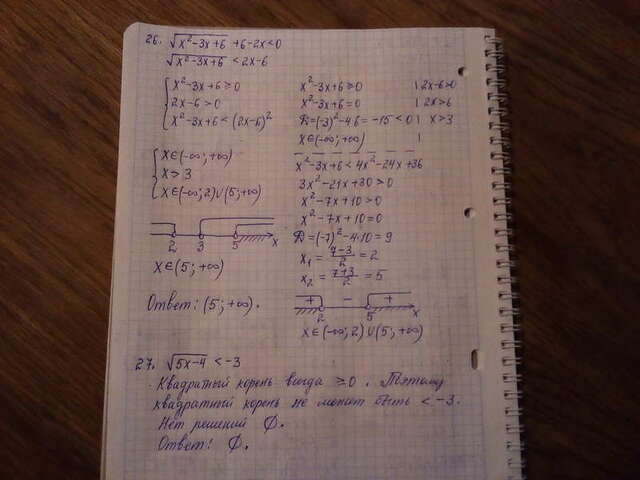 26. √(x²-3x+6) + 6-2x<0
√(x²-3x+6) < 2x-6
{ x²-3x+6 ≥ 0
2x-6 > 0
x²-3x+6 < (2x-6)²
{ x∈(-∞; +∞)
x > 3
x∈(-∞; 2)∪(5; +∞)
2 3 5 x
x∈(5; +∞)
Ответ: (5; +∞).
x²-3x+6 ≥ 0
x²-3x+6 = 0
D=(-3)²-4·6 = -15 < 0
x∈(-∞; +∞)
| 2x-6>0
| 2x>6
| x>3
|
x²-3x+6 < 4x²-24x+36
3x²-21x+30 > 0
x²-7x+10 > 0
x²-7x+10 = 0
D=(-7)²-4·10 = 9
x₁ = (7-3)/2 = 2
x₂ = (7+3)/2 = 5
+ - +
2 5 x
x∈(-∞; 2)∪(5; +∞)
27. √(5x-4) < -3
Квадратный корень всегда ≥ 0. Поэтому
квадратный корень не может быть < -3.
Нет решений ∅.
Ответ: ∅.